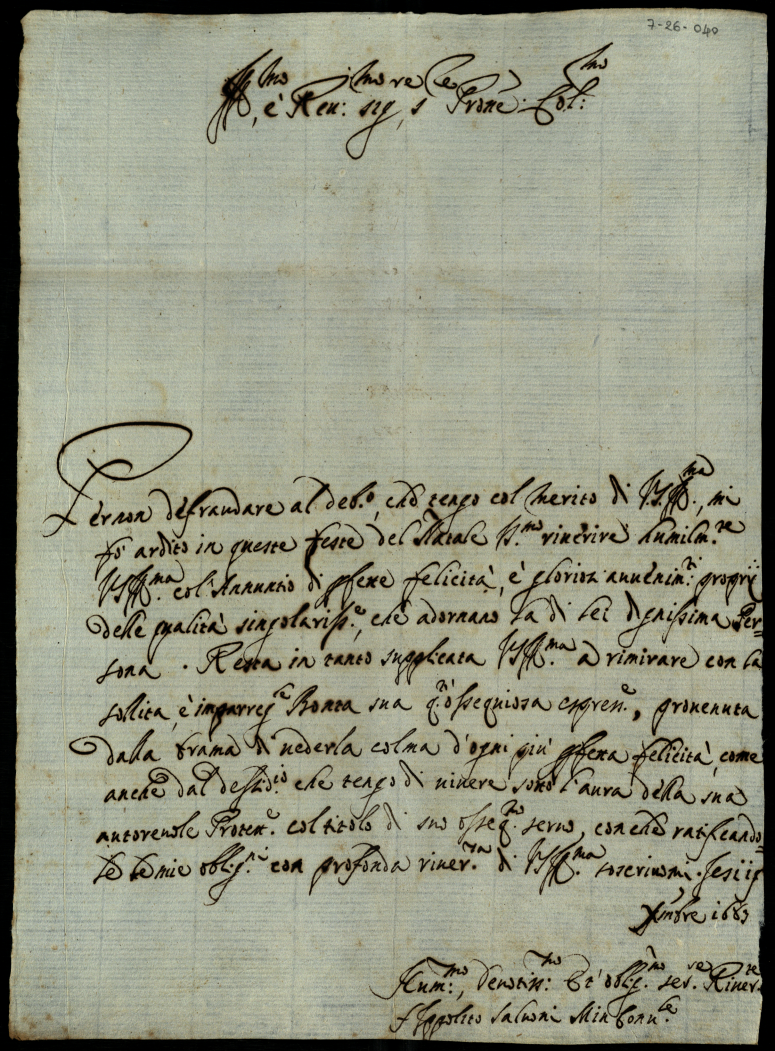 7-26-040
Ill.mo, è Reu:mo sig.re, s Prone Col:mo
Per non defraudare al deb.o, che tengo col merito di VS Ill.ma, mi
fò ardito in queste feste del Natale S.mo riuerire humilm.te
VS Ill.ma col'Annuntio di pfette felicità, è gloriosi auuenim.ti proprij
delle qualità singolariss.e, che adornano la di lei dignissima Per=
sona. Resta in tanto supplicata VS Ill.ma à rimirare con la
sollita, è impareg.le Bontà sua q.ta ossequiosa espress.e, prouenuta
dalla brama di uederla colma d'ogni più pfetta felicità, come
anche dal desid.io che tengo di uiuere sotto l'aura della sua
autoreuole Protett.e col titolo di suo osseq.mo seruo, con che ratificando=
le le mie oblig.ni con profonda riuer.za di VS Ill.ma soscriuomi. Jesi
Xmbre 1683
Hum:mo, deuotiss:mo Et oblig.mo ser.re Riuer.te
Ippolito Saluoni Min Conu.le